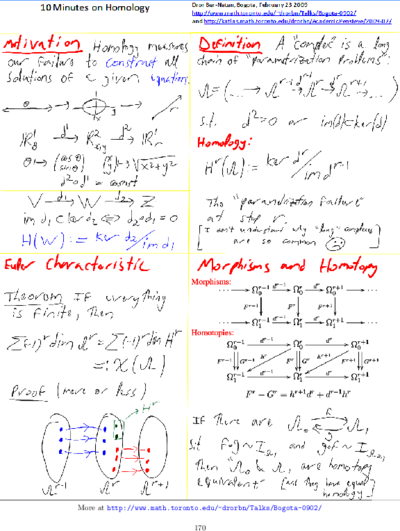 10 Minutes on Homology
Dror Bar-Natan, Bogota, February 23 2009
http://www.math.toronto.edu/~drorbn/Talks/Bogota-0902/
Motivation Homology measures
our failure to construct all
solutions of a given equations.
θ → (cos θ sin θ) (x y) ↦ √x²+y²
d²∘d¹ = const
V —d₁→ W —d₂→ Z
im d₁ ⊂ ker d₂ ⟺ d₂∘d₁ = 0
H(W) := ker d₂ / im d₁
Definition A "complex" is a long
chain of "parametrization problems":
Ω = (… → Ω^{r-1} → Ω^r → Ω^{r+1} → …)
s.t. d² = 0 or im(d) ⊂ ker(d)
Homology:
H^r(Ω) := ker d^r / im d^{r-1}
The "parametrization failure"
at step r.
[I don't understand why "long" complexes
are so common ☹]
Euler Characteristic
Theorem If everything
is finite, then
∑(-1)^r dim Ω^r = ∑(-1)^r dim H^r
=: χ(Ω)
Proof (more or less)
H^r
Ω^{r-1} Ω^r Ω^{r+1}
Morphisms and Homotopy
Morphisms:
Homotopies:
F^r − G^r = h^{r+1}d^r + d^{r-1}h^r
If there are Ω₀ ⇄ Ω₁
s.t. F∘g ~ I_{Ω₁} and g∘F ~ I_{Ω₀},
then Ω₀ & Ω₁ are homotopy
equivalent [and they have equal
homology]
More at http://www.math.toronto.edu/~drorbn/Talks/Bogota-0902/
170